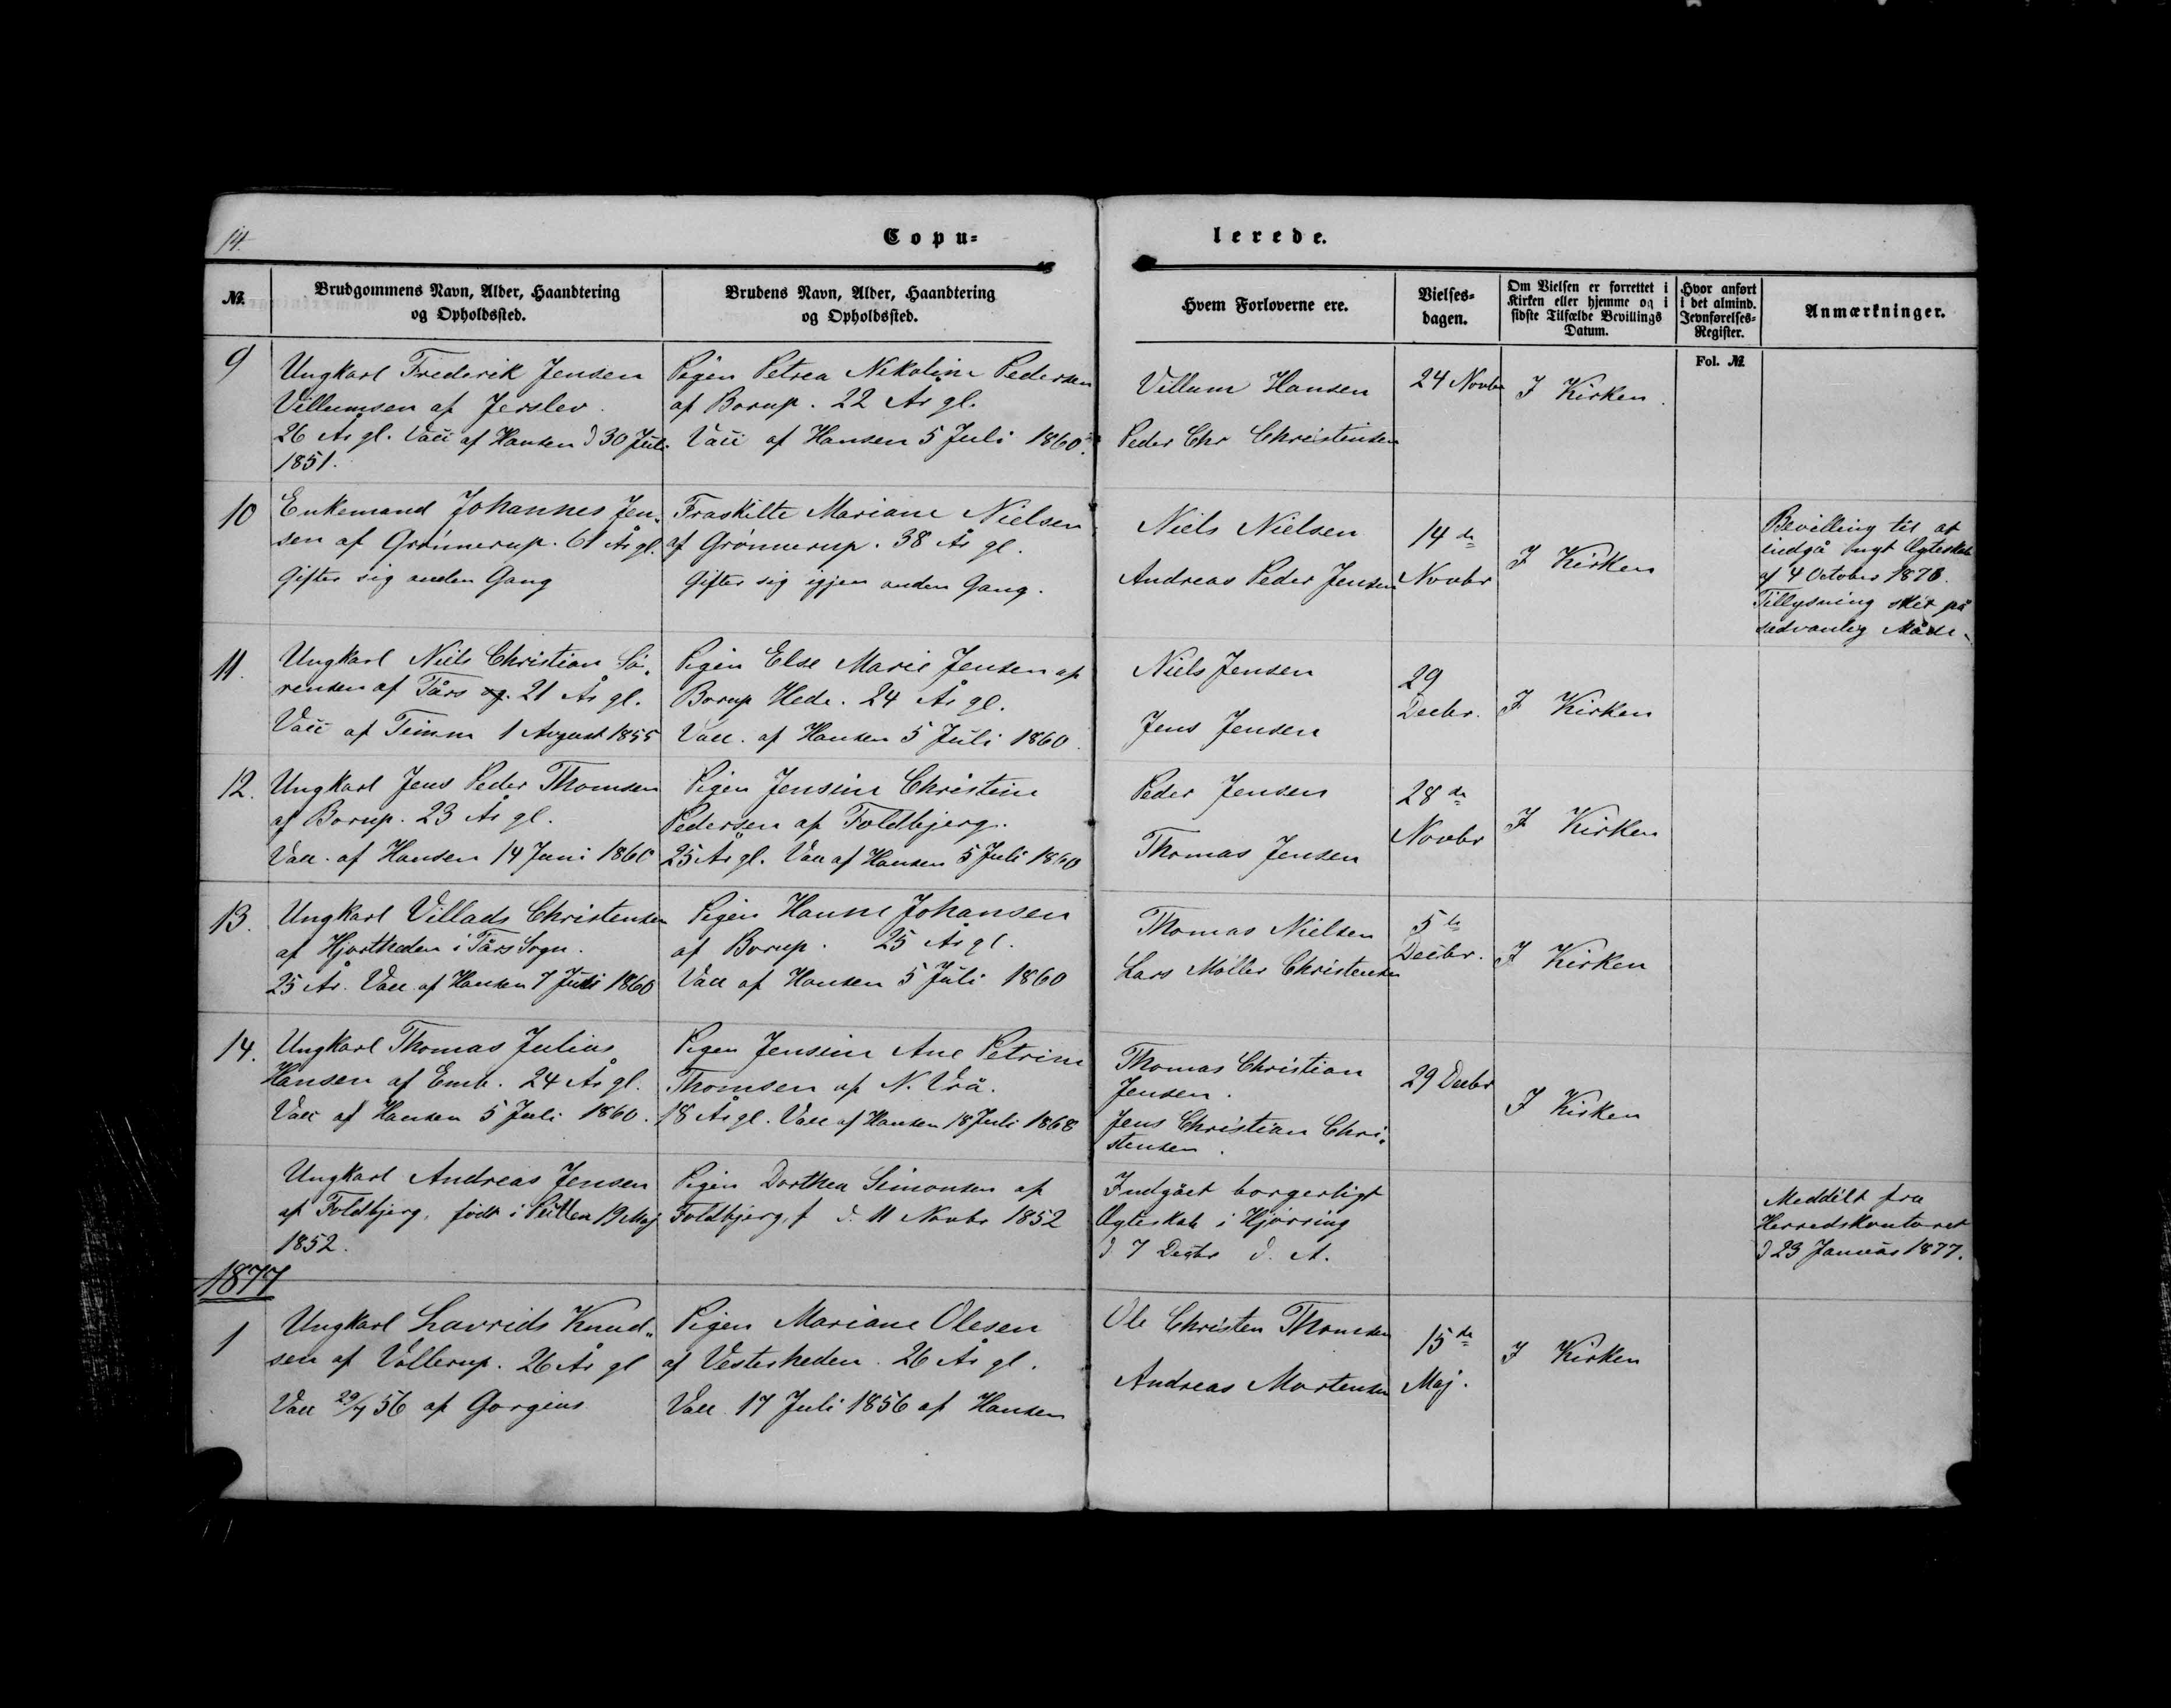 14.
Copu=
lerede.
№.
Brudgommens Navn, Alder, Haandtering
og Opholdssted.
Brudens Navn, Alder, Haandtering
og Opholdssted.
Hvem Forloverne ere.
Vielses=
dagen.
Om Vielsen er forrettet i
Kirken eller hjemme og i
sidste Tilfælde Bevillings
Datum.
Hvor anført
i det almind.
Jevnførelses=
Register.
Anmærkninger.
Fol. №.
9
Ungkarl Frederik Jensen
Villumsen af Jerslev.
26 År gl. Vacc af Hansen d 30 Juli
1851.
Pigen Petrea Nikoline Pedersen
af Borup. 22 År gl.
Vacc af Hansen 5 Juli 1860.
Villum Hansen
Peder Chr Christensen
24 Novbr
I Kirken.
10
Enkemand Johannes Jen-
sen af Grønnerup. 61 År gl.
Gifter sig anden Gang
Fraskilte Mariane Nielsen
af Grønnerup. 38 År gl.
Gifter sig igjen anden Gang.
Niels Nielsen
Andreas Peder Jensen
14 de
Novbr
I Kirken
Bevilling til at
indgå nyt Ægteskab
af 4 October 1876.
Tillysning sket på
sædvanlig Måde.
11.
Ungkarl Niels Christian Sö-
rensen af Tårs og. 21 År gl.
Vacc af Timm 1 August 1855
Pigen Else Marie Jensen af
Borup Hede. 24 År gl.
Vacc. af Hansen 5 Juli 1860.
Niels Jensen
Jens Jensen
29
Decbr.
I Kirken
12.
Ungkarl Jens Peder Thomsen
af Borup. 23 År gl.
Vacc. af Hansen 14 Juni 1860
Pigen Jensine Christine
Pedersen af Foldbjerg.
25 År gl. Vacc af Hansen 5 Juli 1860
Peder Jensen
Thomas Jensen
28 de
Novbr
I Kirken
13.
Ungkarl Villads Christensen
af Hjortheden i Tårs Sogn.
25 År. Vacc. af Hansen 7 Juli 1860
Pigen Hanne Johansen
af Borup. 25 År gl.
Vacc af Hansen 5 Juli 1860
Thomas Nielsen
Lars Møller Christensen
5 te
Decbr.
I Kirken
14.
Ungkarl Thomas Julius
Hansen af Emb. 24 År gl.
Vacc af Hansen 5 Juli 1860.
Pigen Jensine Ane Petrine
Thomsen af N. Vrå.
18 År gl. Vacc af Hansen 18 Juli 1868
Thomas Christian
Jensen.
Jens Christian Chri-
stensen.
29 Decbr
I Kirken
Ungkarl Andreas Jensen
af Foldbjerg, født i 19 Maj
1852.
Pigen Dorthea Simonsen af
Foldbjerg, f d. 11 Novbr 1852
Indgået borgerligt
Ægteskab i Hjørring
d 7 Decbr d. A.
Meddelt fra
Herredskontoret
d 23 Januar 1877.
1877
1
Ungkarl Lavrids Knud-
sen af Vollerup. 26 År gl
Vacc 29/7 56 af Gorgius
Pigen Mariane Olesen
af Vesterheden. 26 År gl.
Vacc 17 Juli 1856 af Hansen
Ole Christen Thomsen
Andreas Mortensen
15 de
Maj.
I Kirken